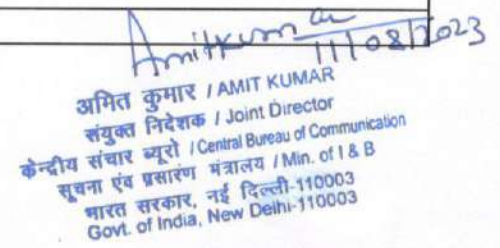 Amitkumar
11/08/2023
अमित कुमार / AMIT KUMAR
संयुक्त निदेशक / Joint Director
केन्द्रीय संचार ब्यूरो / Central Bureau of Communication
सूचना एंव प्रसारण मंत्रालय / Min. of I & B
भारत सरकार, नई दिल्ली-110003
Govt. of India, New Delhi-110003